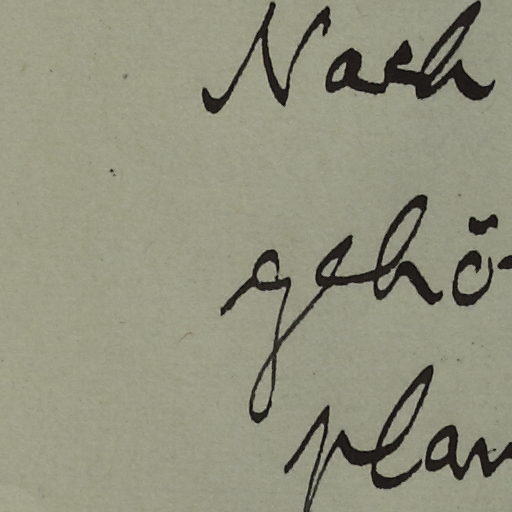 Nach
gehö
plan